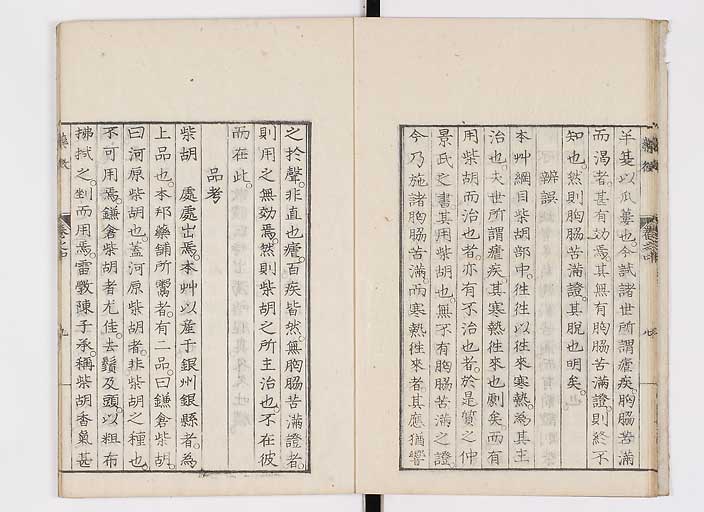 半夏以瓜蔞也。今試諸世所謂瘧疾。胸脇苦滿
而渴者。甚有効焉。其無有胸脇苦滿證。則終不
知也。然則胸脇苦滿證。其脫也明矣。
辨誤
本艸綱目柴胡部中。徃徃以徃來寒熱。為其主
治也。夫世所謂瘧疾。其寒熱徃來也劇矣。而有
用柴胡而治也者。亦有不治也者。於是質之仲
景氏之書。其用柴胡也。無不有胸脇苦滿之證。
今乃施諸胸脇苦滿。而寒熱徃來者。其應猶響
之於聲。非直也瘧。百疾皆然。無胸脇苦滿證者。
則用之無効焉。然則柴胡之所主治也。不在彼
而在此。
品考
柴胡 處處出焉。本艸以産于銀州銀縣者。為
上品也。本邦藥鋪所鬻者。有二品。曰鎌倉柴胡。
曰河原柴胡也。蓋河原柴胡者。非柴胡之種也。
不可用焉。鎌倉柴胡者尤佳。去鬚及頭。以粗布
拂拭之。剉而用焉。雷斅陳子承。稱柴胡香氣甚
藥徵
卷之中
九